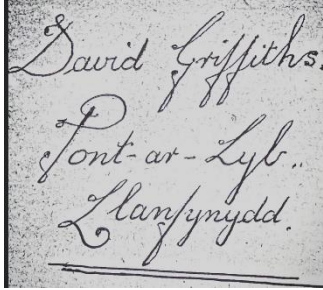 David Griffiths.
Pont-ar-Lyb..
Llanfynydd.